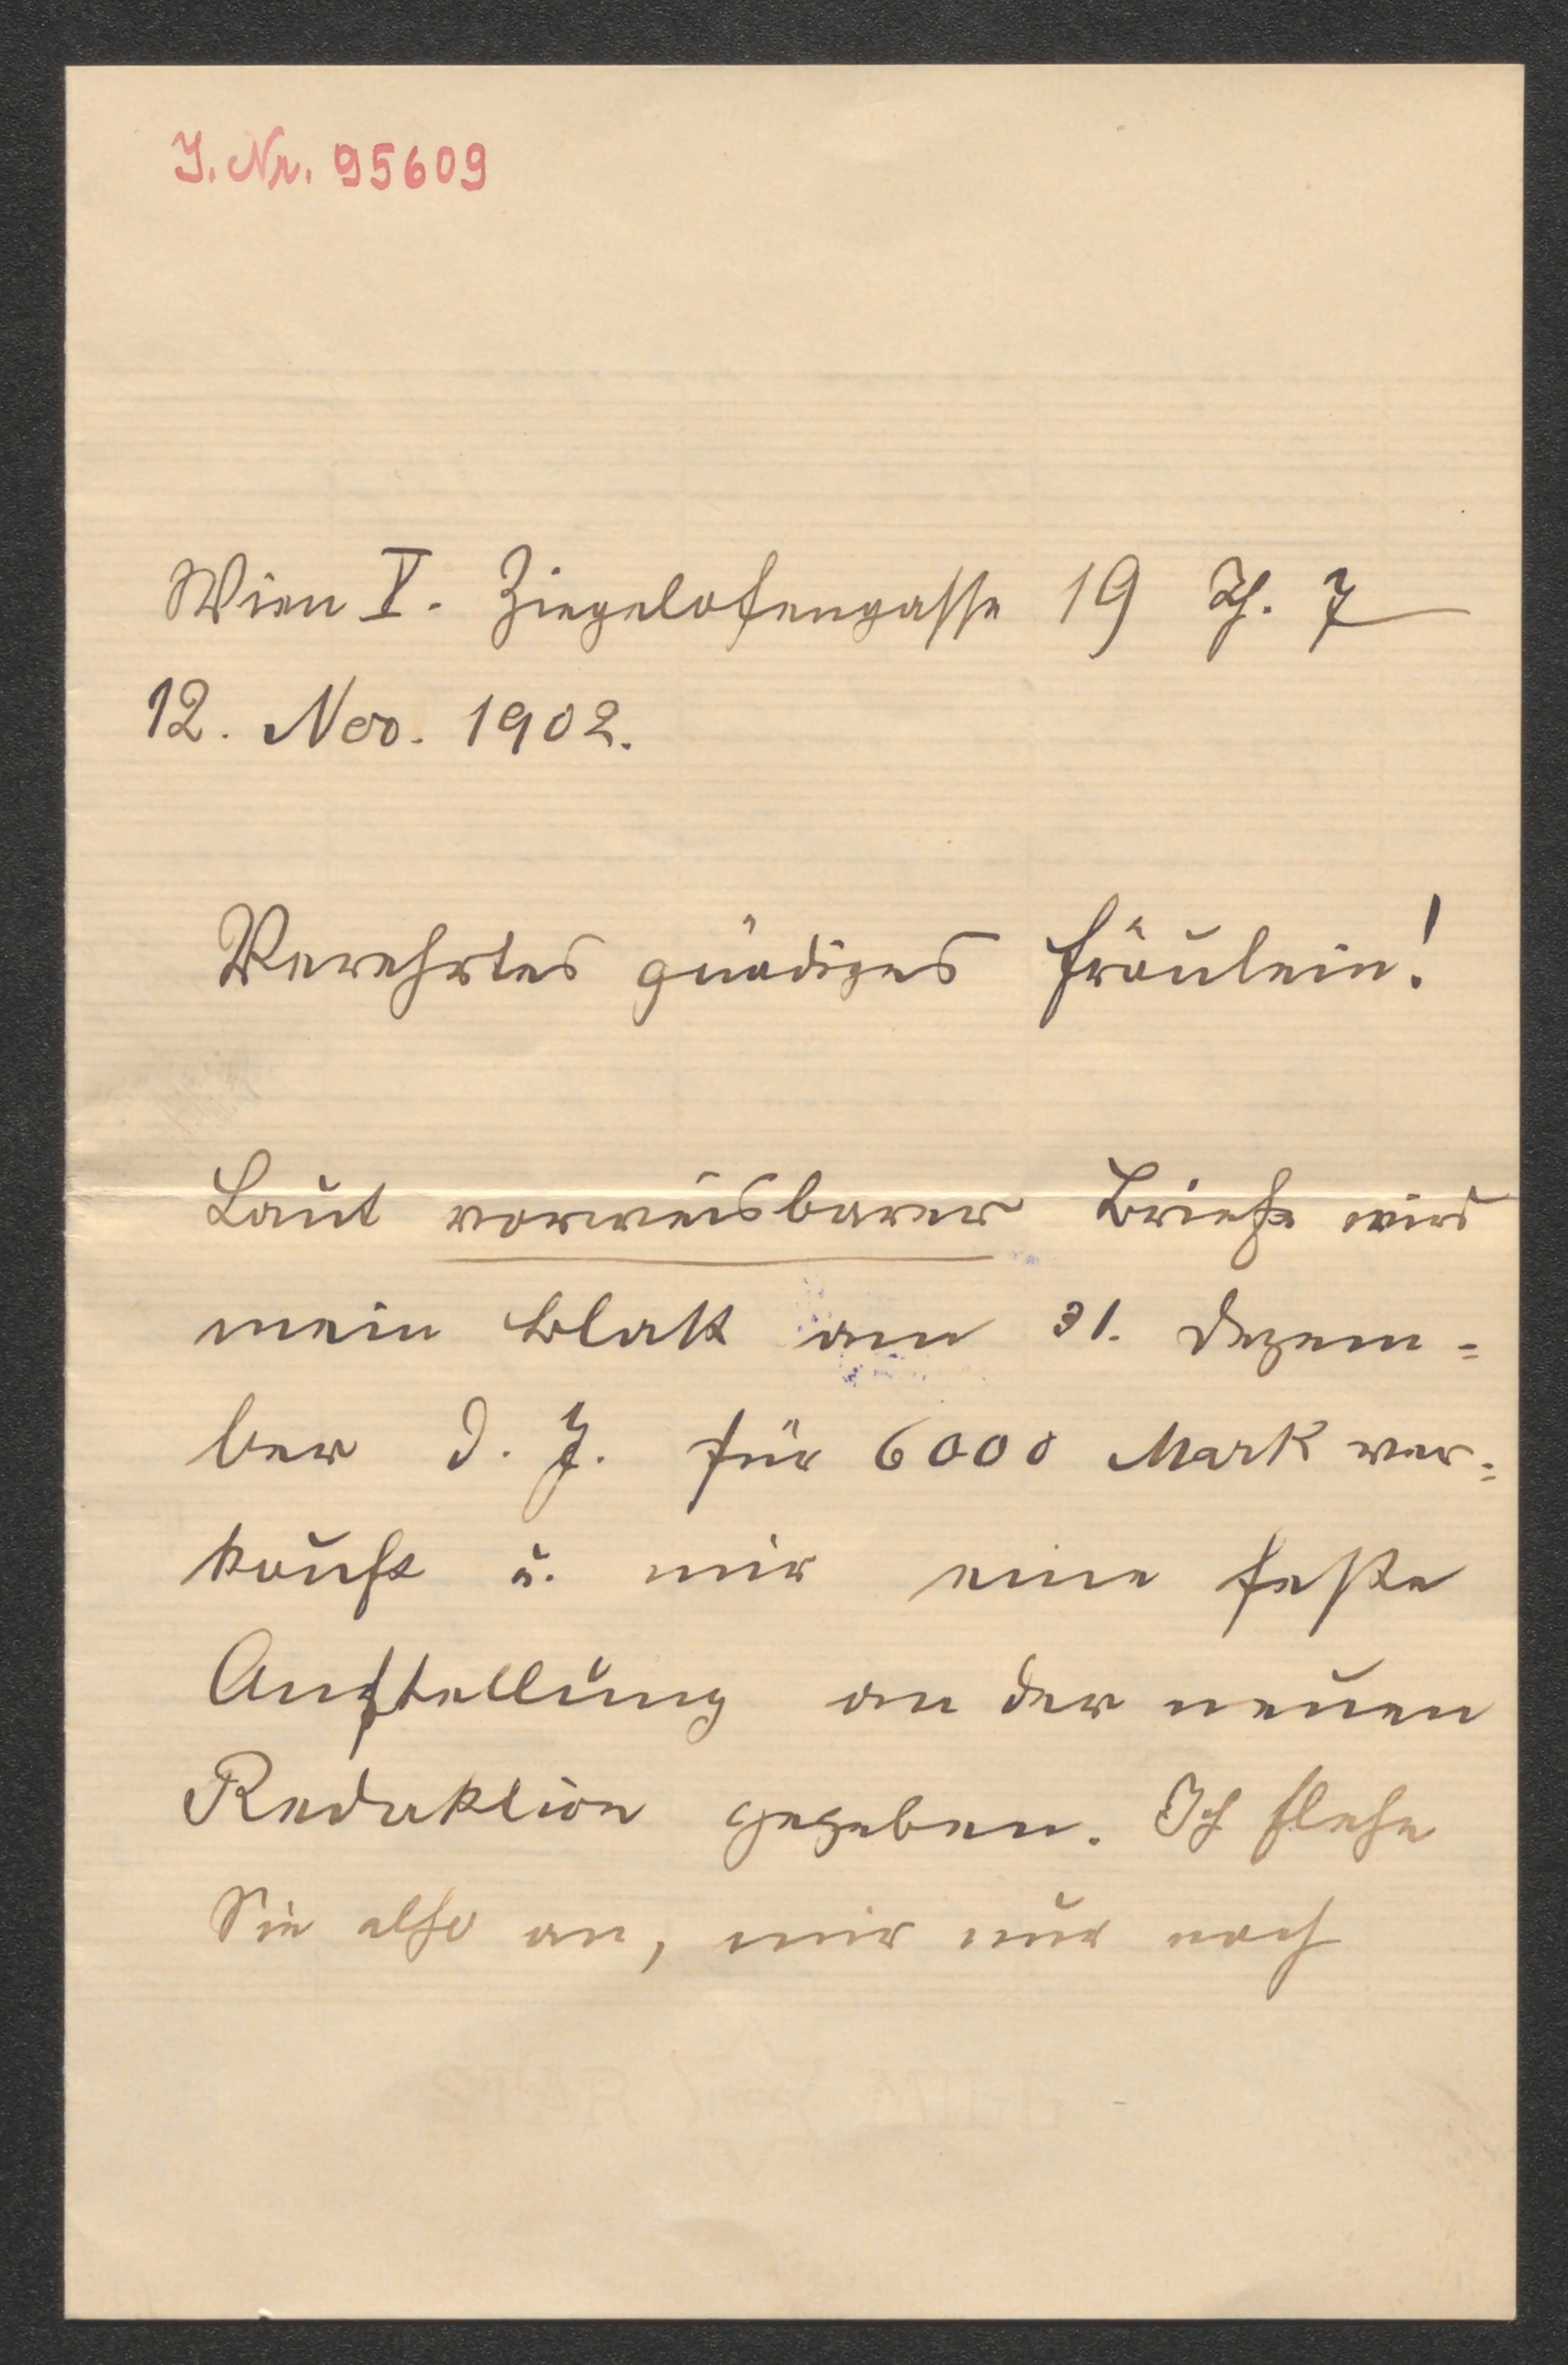 J. Nr. 95609
Wien V. Ziegelofengasse 19 Th. 7
12. Nov. 1902.
Verehrtes gnädiges Fräulein!
Laut vorweisbarer Briefe wird
mein Blatt am 31. Dezem=
ber d. J. für 6000 Mark ver=
kauft u. mir eine feste
Anstellung an der neuen
Redaktion gegeben. Ich flehe
Sie also an, mir nur noch